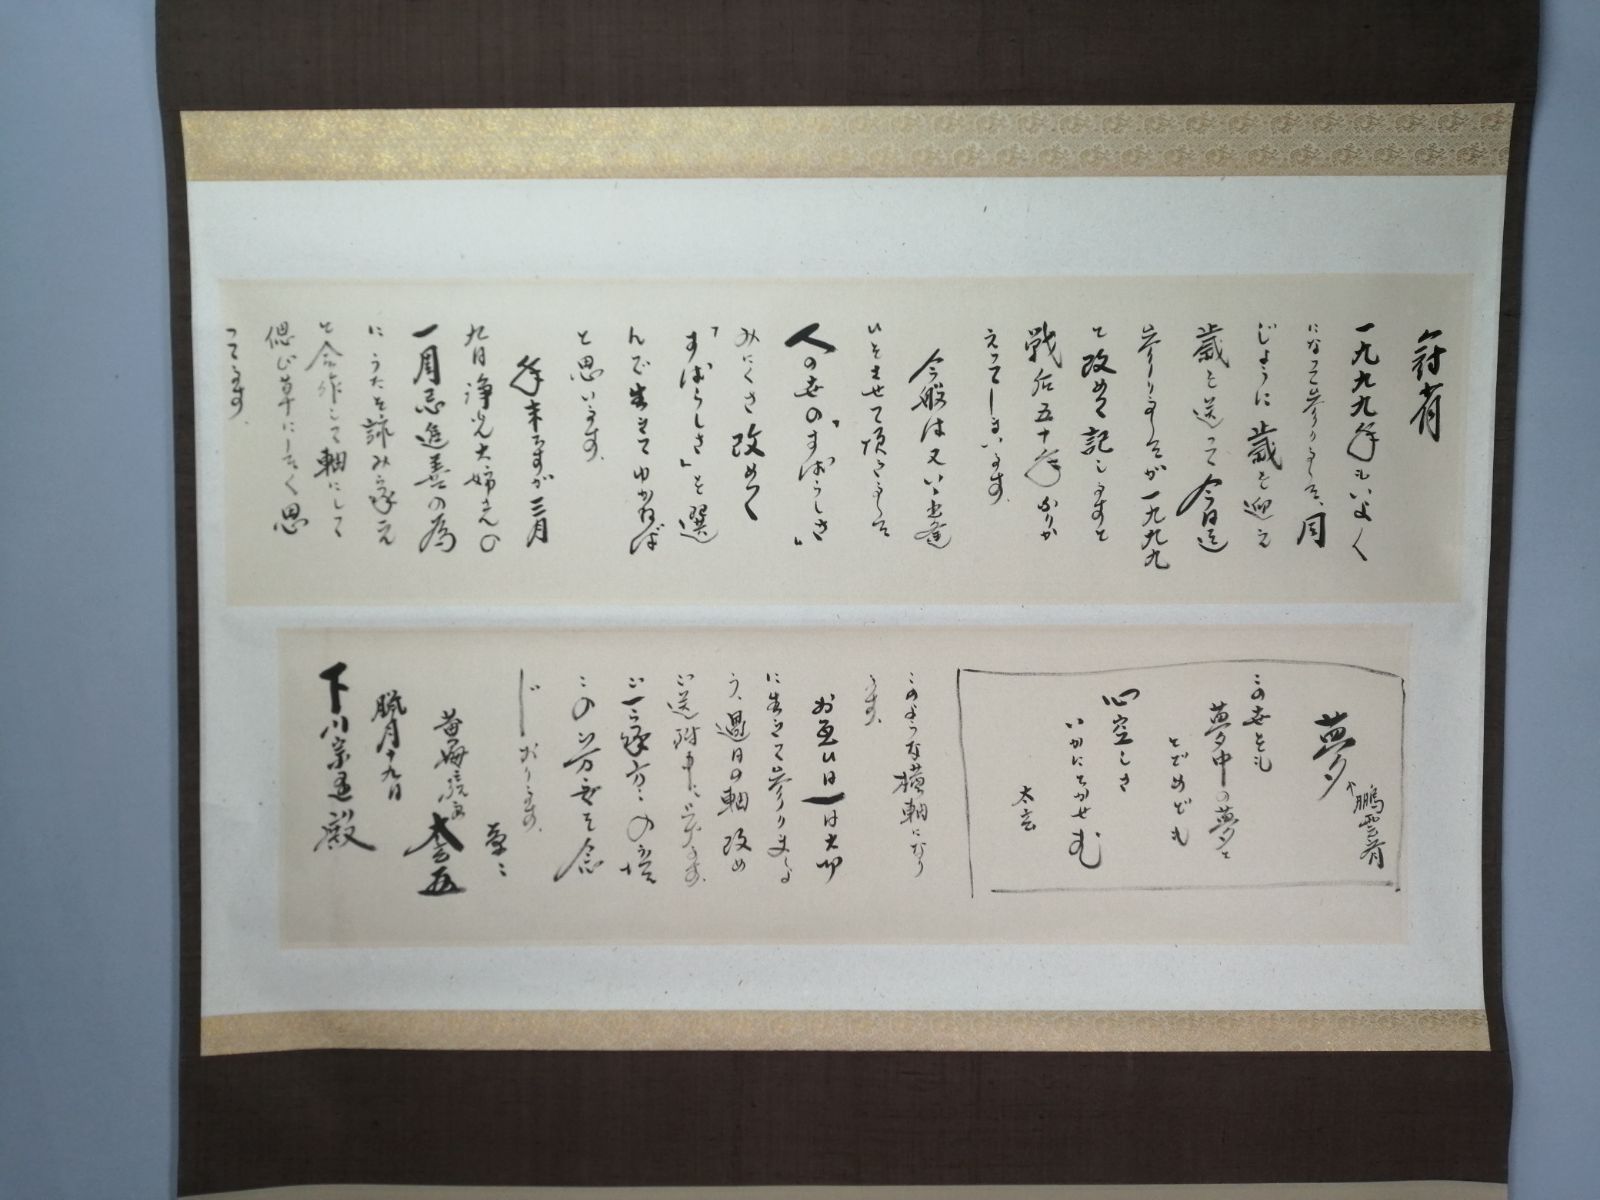 一九九九年もいよ〱
になって参りました、同
じように歳を迎え
歳を送って今日迄
参りましたが一九九九
と改めて記しますと
戦后五十年ふりか
えってしまいます。
今般は又いゝ出逢
いをさせて頂きました
人の世の『すばらしさ』
みにくさ改めて
『すばらしさ』を選
んで生きてゆかねば
と思います。
年末ですが三月
九日浄光大姉さんの
一周忌追善の為
にうたを詠み
と合作して軸にして
偲び草にしたく思
って
夢
鵬雲斎
この世をも
夢中の夢と
とどめども
心空しき
いかにとかせむ
太玄
このような横軸になり
ます。
お互ひ日一日大切
に生きて参りましょ
う、過日の軸改め
ご送附申し
ご一家方々の
この
じおります。
草々
臘月十九日
下川宗
殿